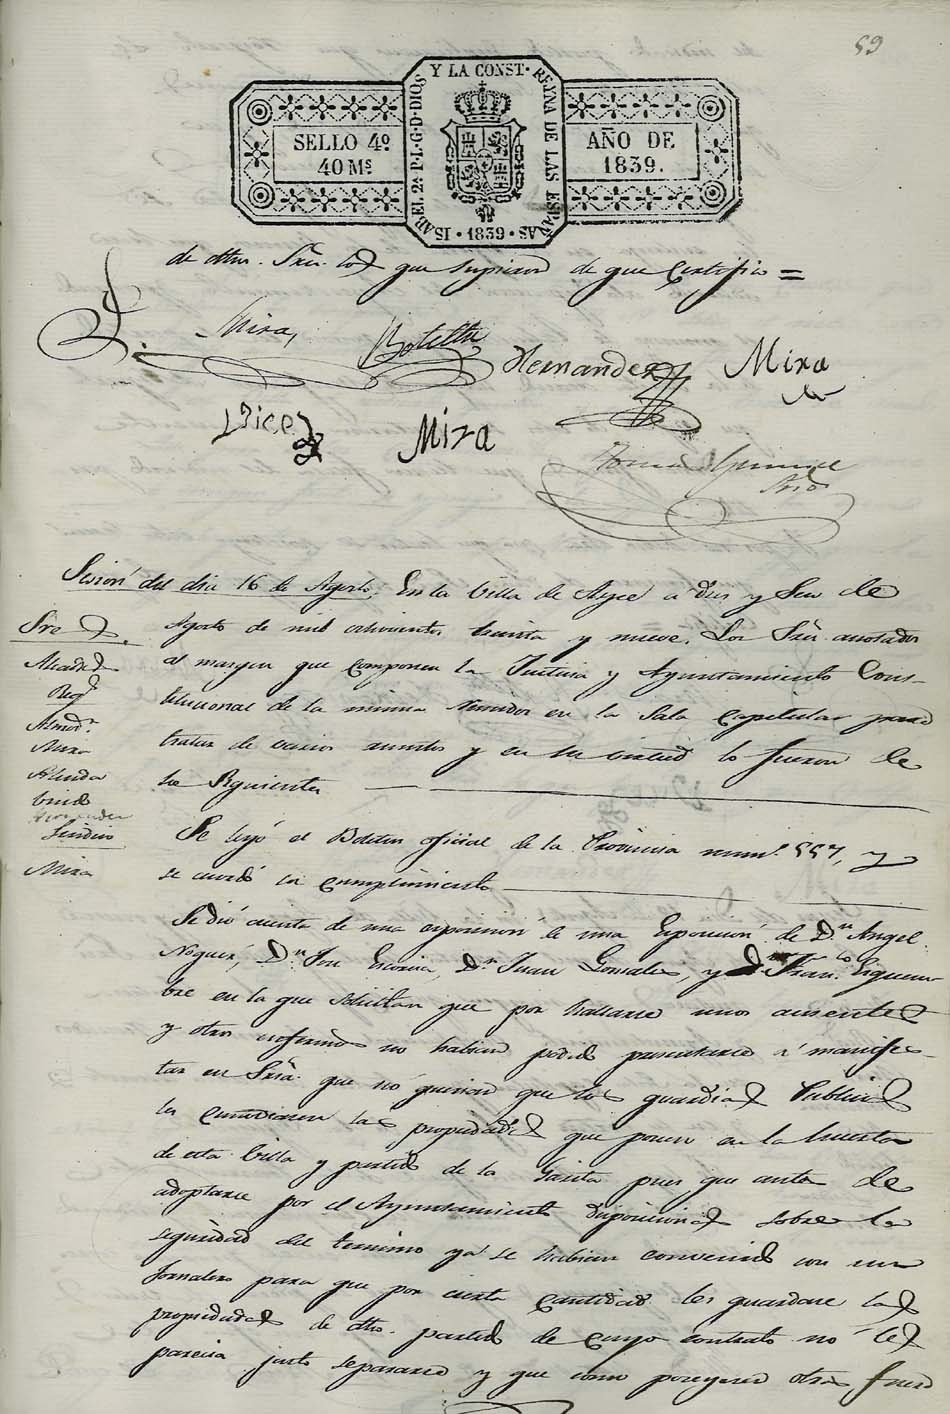 59
ISABEL 2ª P.L.G.D.DIOS Y LA CONST. REYNA DE LAS ESPAÑAS
SELLO 4º
40 Ms
AÑO DE
1839.
· 1839 ·
de dhos. Sres. los que supieron de que certifico =
Mira,
Botella
Hernandez
Mira
Mira
Srio
Sesion del dia 16 de Agosto. En la Villa de a dies y Seis de
Sres.
Agosto de mil ochocientos treinta y nueve. Los Sres. anotados
Alcaldes
al margen que componen la Justicia y Ayuntamiento Cons-
Regs
titucional de la misma reunidos en la Sala Capitular para
Mira
tratar de varios asuntos y en su virtud lo fueron de
los Siguientes
Hernandez
Sindico
Se leyó el Boletin oficial de la Provincia num. 557, y
Mira
se acordó su cumplimiento
Se dió cuenta de una exposicion de una Exposicion de Dn. Angel
Dn. Jose Dn. Juan Gonzales, y Dn. Franco.
en la que solicitan que por hallarse unos ausentes
y otros enfermos no habian podido presentarse á manifes-
tar en Sria. que nó querian que los guardias Publicos
les custodiasen las propiedades que poseen en la huerta
de esta Villa y partido de la pues que antes de
adoptarse por el Ayuntamiento disposiciones sobre la
seguridad del termino ya se habian convenido con un
Jornalero para que por cierta cantidad les guardase las
propiedades de dho. partido de cuyo contrato no les
parecia justo separarse y que como poseyeren otras fuera